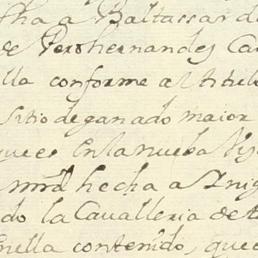 fha a Baltassar d
de Perohernandes Ca
lla conforme al titul
sitio de ganado maior
que es en la nueba
md hecha a Inig
do la Cavalleria de t
en ella contenido, que